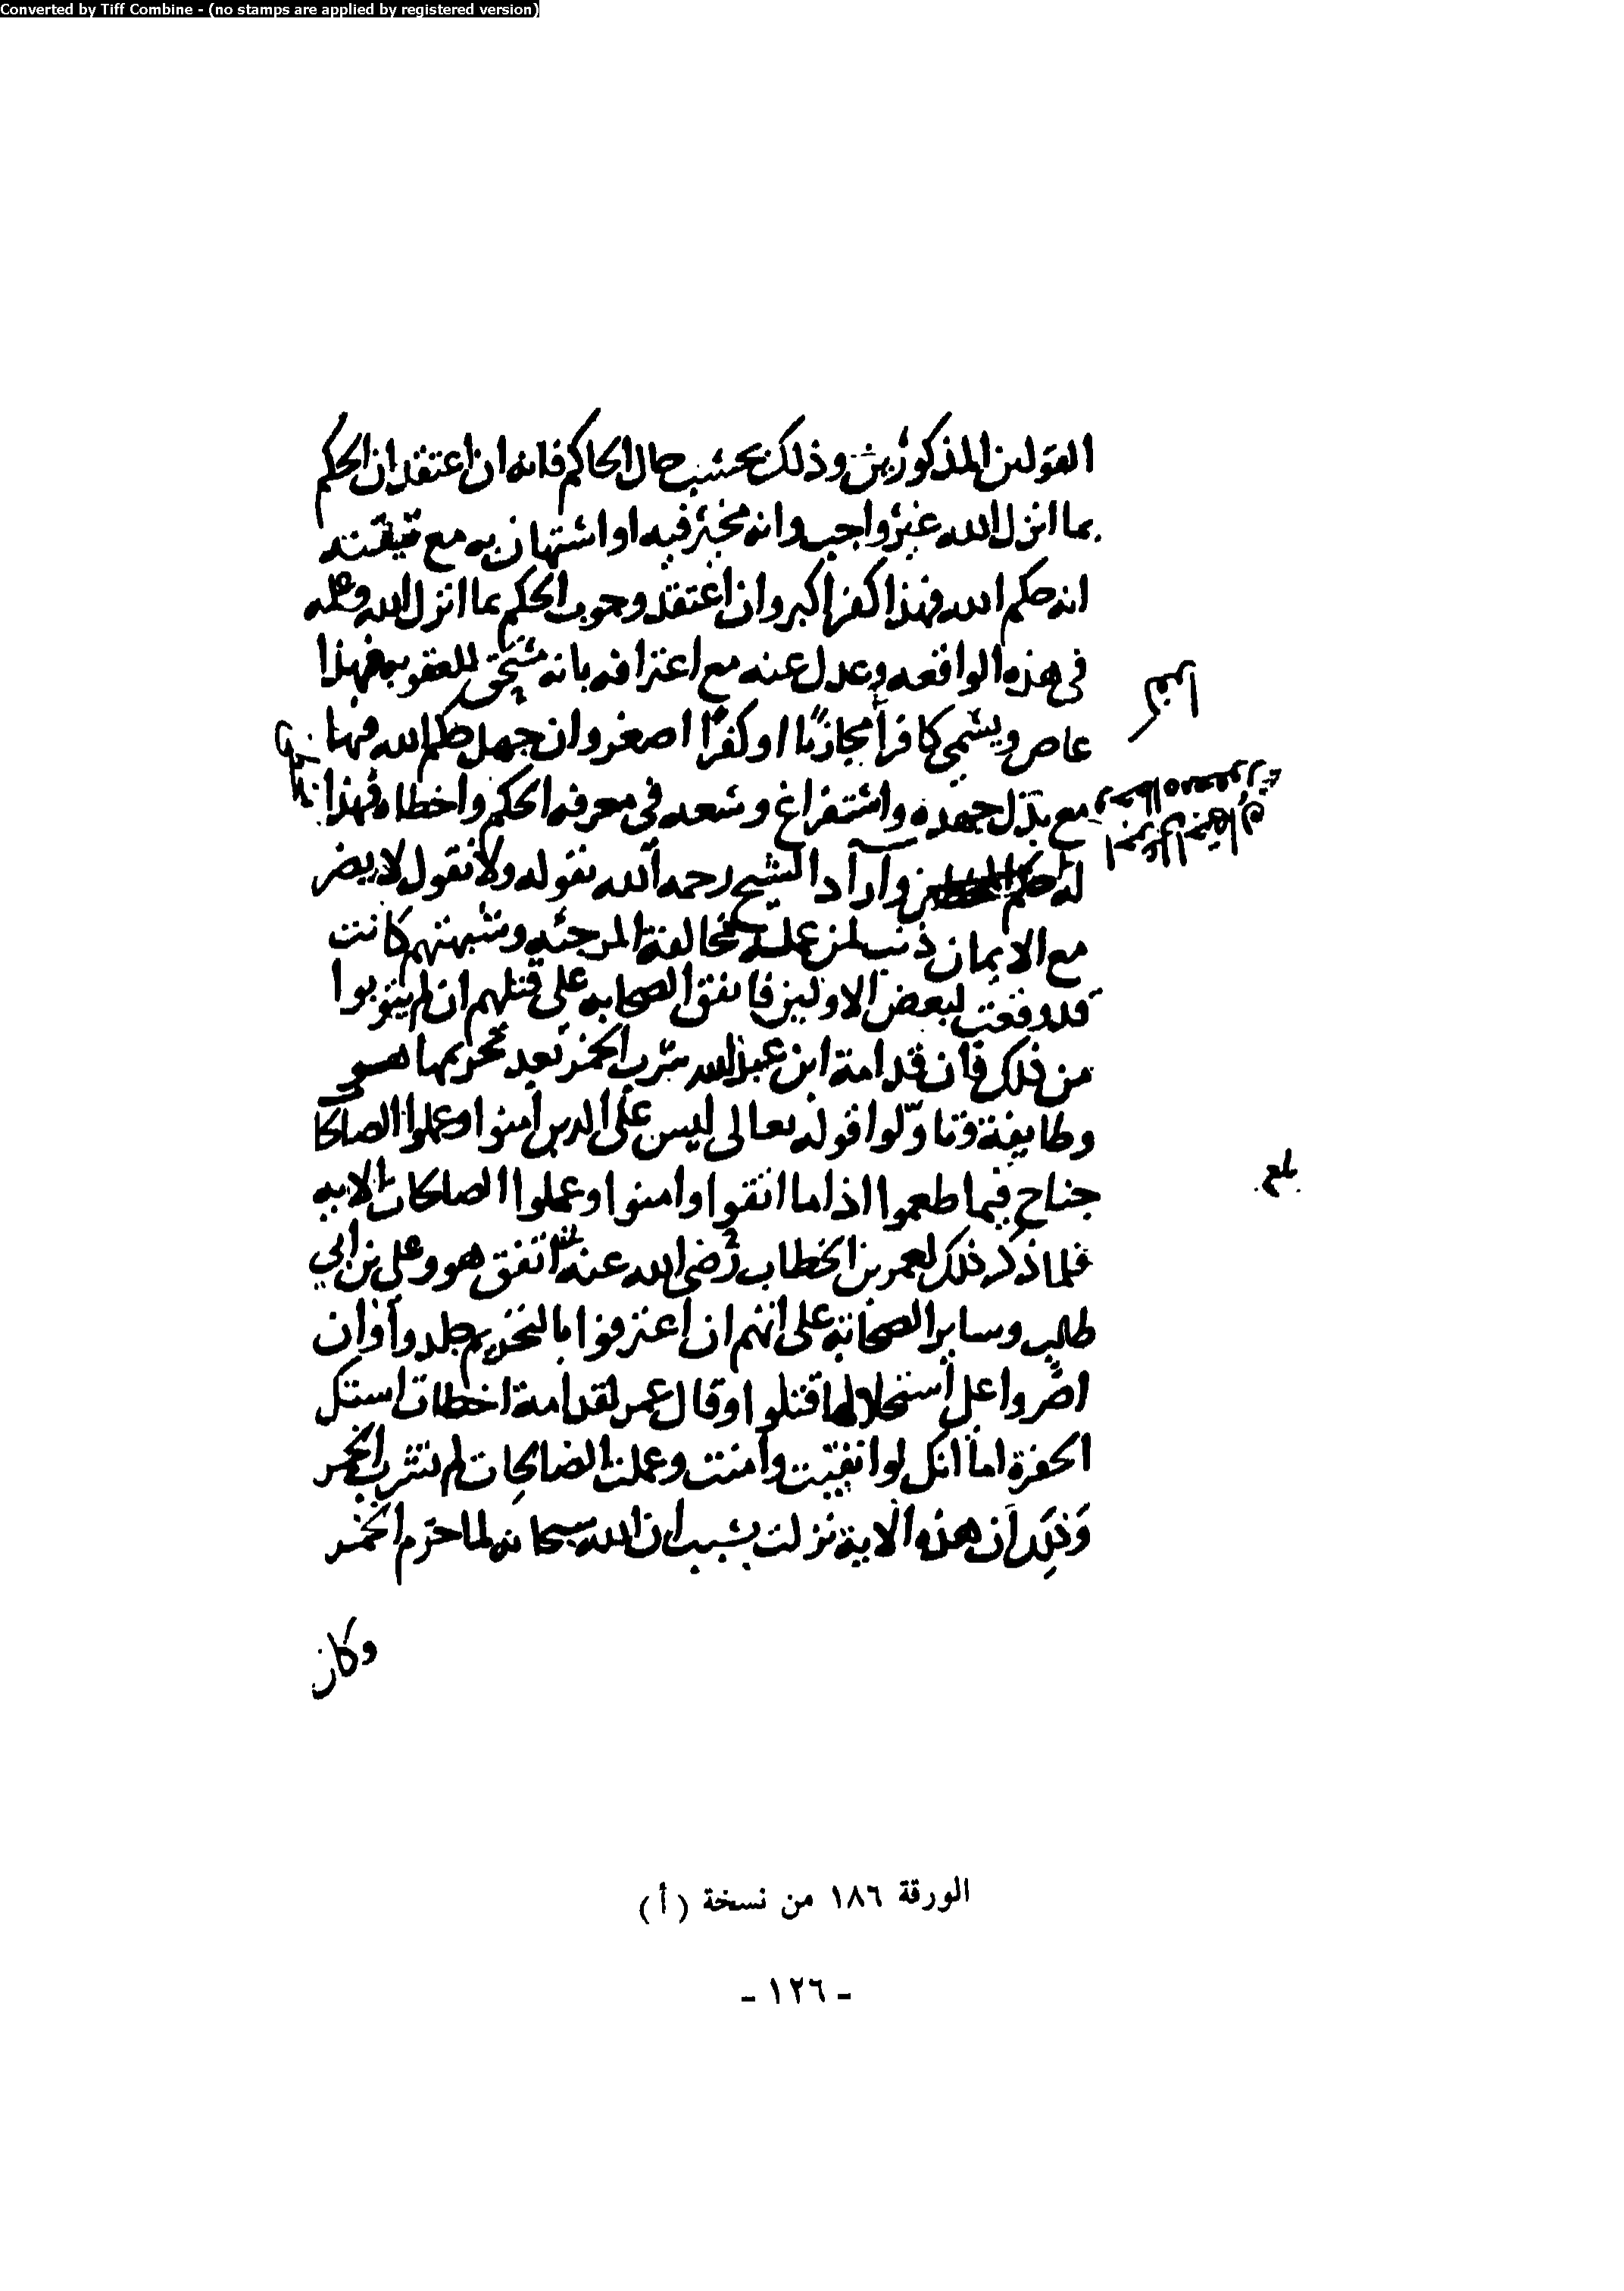 Converted by Tiff Combine - (no stamps are applied by registered version)
القولين المذكورين وذلك بحسب حال الحاكم فانه ان اعتقد ان الحكم
بما انزل الله غير واجب وانه مخير فيه او استهان به مع تيقنه
انه حكم الله فهذا كفر اكبر وان اعتقد وجوب الحكم بما انزل الله وعلمه
في هذه الواقعه وعدل عنه مع اعترافه بانه مستحق للعقوبه فهذا
عاص ويسمى كافرا مجازيا او كفرا اصغر وان جهل حكم الله فيها
مع بذل جهده واستفراغ وسعه في معرفه الحكم واخطاه فهذا
له حكم المخطئين واراد الشيخ رحمه الله بقوله ولا نقول لا يضر
مع الايمان ذنب لمن عمله مخالفة المرجئه وشبهتهم كانت
قد وقعت لبعض الاولين فاتفق الصحابه على قتلهم ان لم يتوبوا
من ذلك فان قدامة ابن عبد الله شرب الخمر بعد تحريمها هو
وطايفة وتاولوا قوله تعالى ليس على الذين امنوا وعملوا الصالحات
جناح فيما طعموا اذا ما اتقوا وامنوا وعملوا الصالحات الايه
فلما ذكر ذلك لعمر بن الخطاب رضي الله عنه اتفق هو وعلي بن ابي
طالب وساير الصحابة على انهم ان اعترفوا بالتحريم جلدوا وان
اصروا على استحلالها قتلوا وقال عمر لقدامة اخطات استك
الحفرة اما انك لو اتقيت وامنت وعملت الصالحات لم تشرب الخمر
وذلك ان هذه الاية نزلت بسبب ان الله سبحانه لما حرم الخمر
وكان
بلغ
الورقة ١٨٦ من نسخة (أ)
- ١٢٦ -